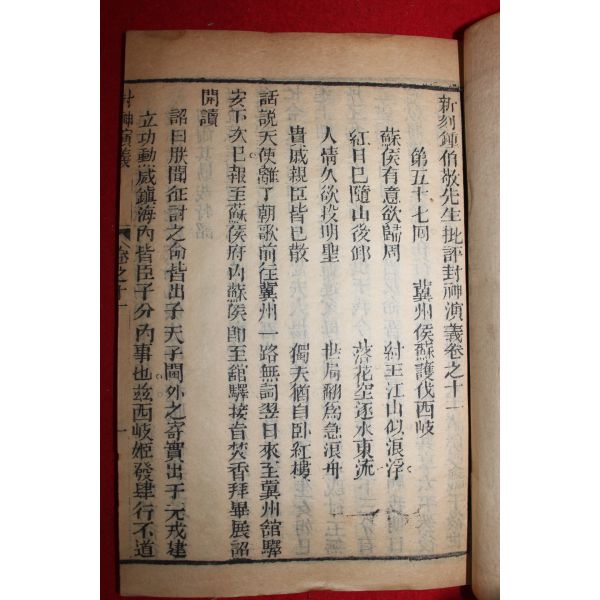 新刻鍾伯敬先生批評封神演義卷之十一
第五十七回　冀州侯蘇護伐西岐
蘇侯有意欲歸周　紂王江山似浪浮
紅日已隨山後卸　落花空逐水東流
人情久欲投明聖　世局翻為急浪舟
貴戚親臣皆已散　獨夫猶自卧紅樓
話說天使離了朝歌前往冀州一路無詞翌日來至冀州館驛
安下次日報至蘇侯府內蘇侯即至館驛接旨焚香拜畢展詔
開讀
詔曰朕聞征討之命皆出于天子閫外之寄實出于元戎建
立功勳威鎮海內皆臣子分內事也茲西岐姬發肆行不道
封神演義　卷之十一　一